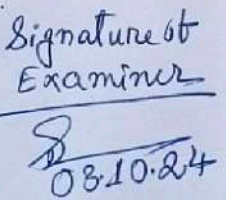 Signature of
Examiner
03.10.24